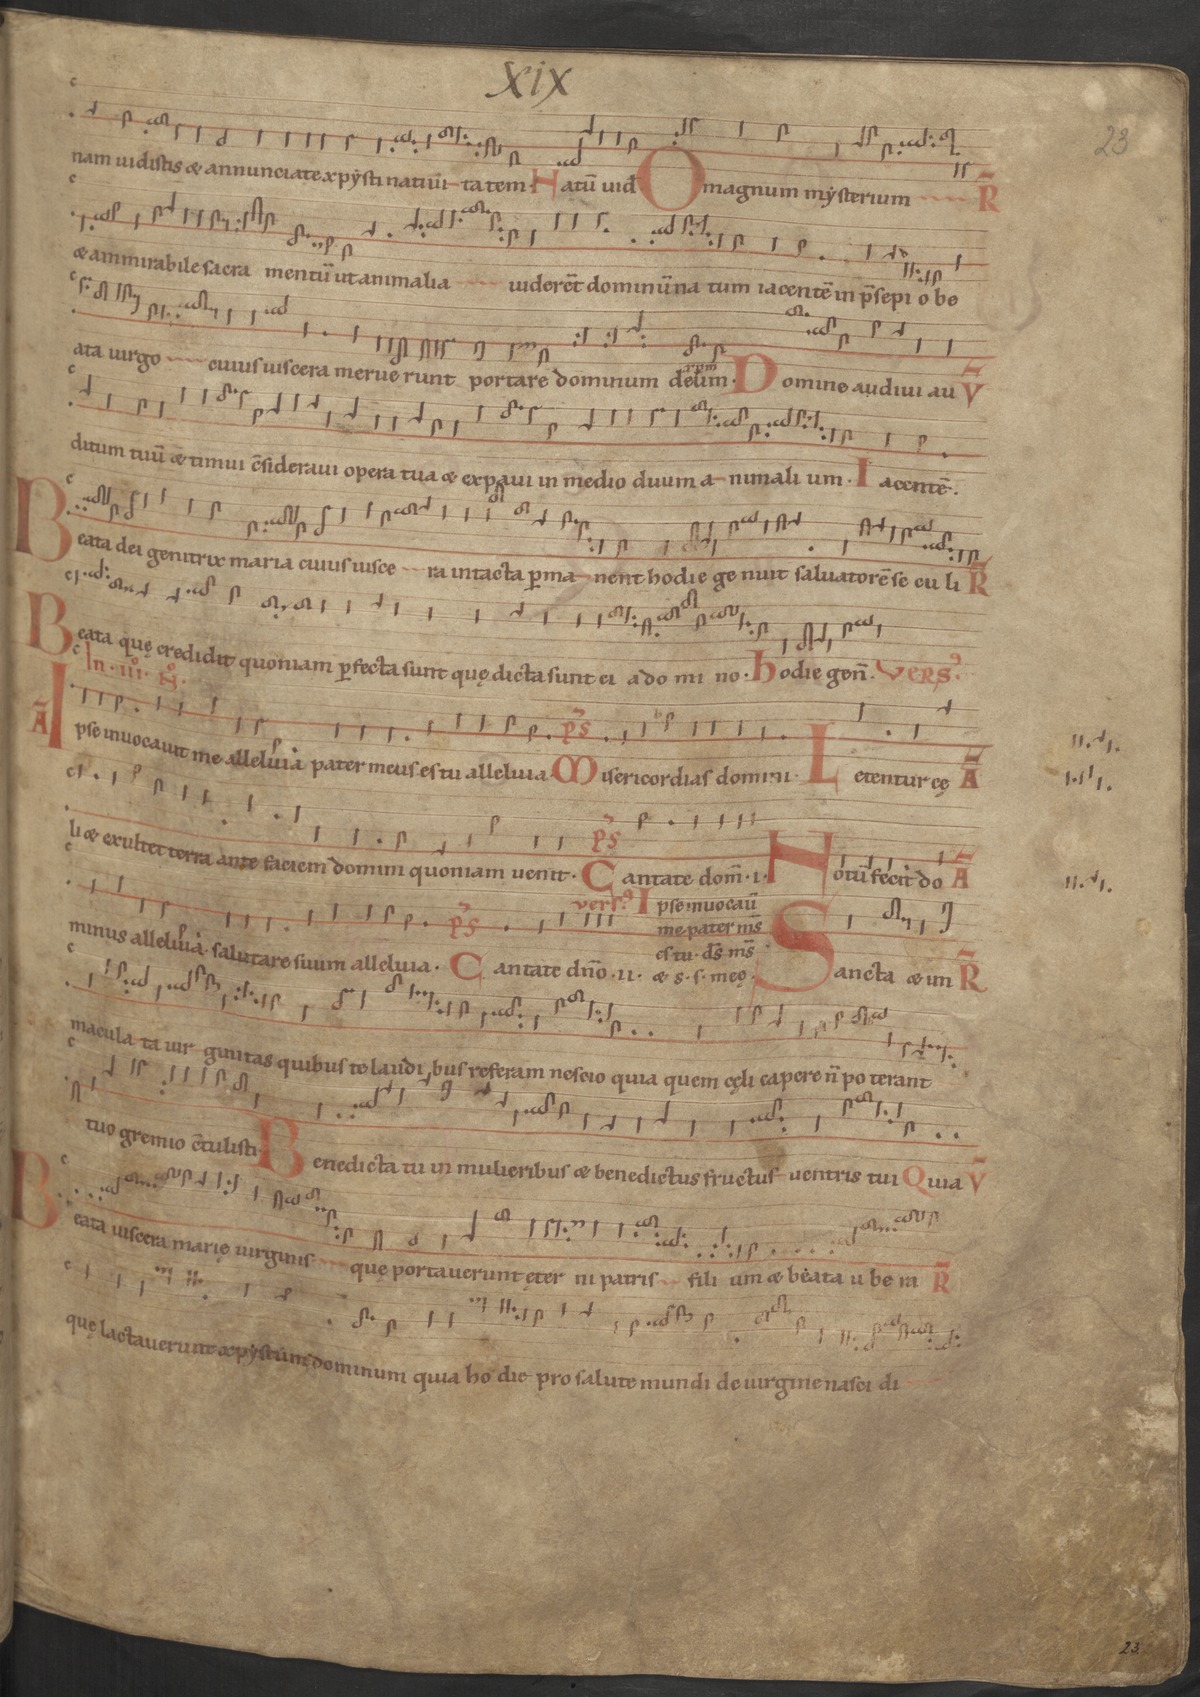 xix
23
nam uidistis & annunciate xpỹsti natiuī tatem Natū uid O magnum mẏsterium R̃
& ammirabile sacra mentū ut animalia uiderēt dominū na tum iacentē in p̄sepi o be
ata uirgo cuius uiscera merue runt portare dominum Domine audiui au V̄
ditum tuū & timui c̄sideraui opera tua & expaui in medio duum a nimali um . I acentē .
Beata dei genitrix maria cuius uisce ra intacta p̱ma nent hodie ge nuit saluatorē se cu li R̃
Beata quę credidit quoniam p̱fecta sunt quę dicta sunt ei a do mi no . hodie geñ . vers⁹ .
In . iii . N̊ .
Ipse inuocauit me alleluia pater meus es tu alleluia ps̄ Misericordias domini . Letentur cę Ā
li & exultet terra ante faciem domini quoniam uenit . ps̄ Cantate dom̄ . i . Notū fecit do Ā
vers⁹ Ipse inuocaū
me pater m̄s
es tu . d̄s m̄s
& s . s . meę .
minus alleluia . salutare suum alleluia . ps̄ Cantate dn̄o . ii . Sancta & in R̃
macula ta uir ginitas quibus te laudi bus referam nescio quia quem cęli capere n̄ po terant
tuo gremio c̄tulisti . Benedicta tu in mulieribus & benedictus fructus uentris tui Quia V̄
Beata uiscera marię uirginis quę portauerunt ęter ni patris fili um & beata u be ra R̃
quę lactauerunt xpỹstum dominum quia ho die pro salute mundi de uirgine nasci di
23